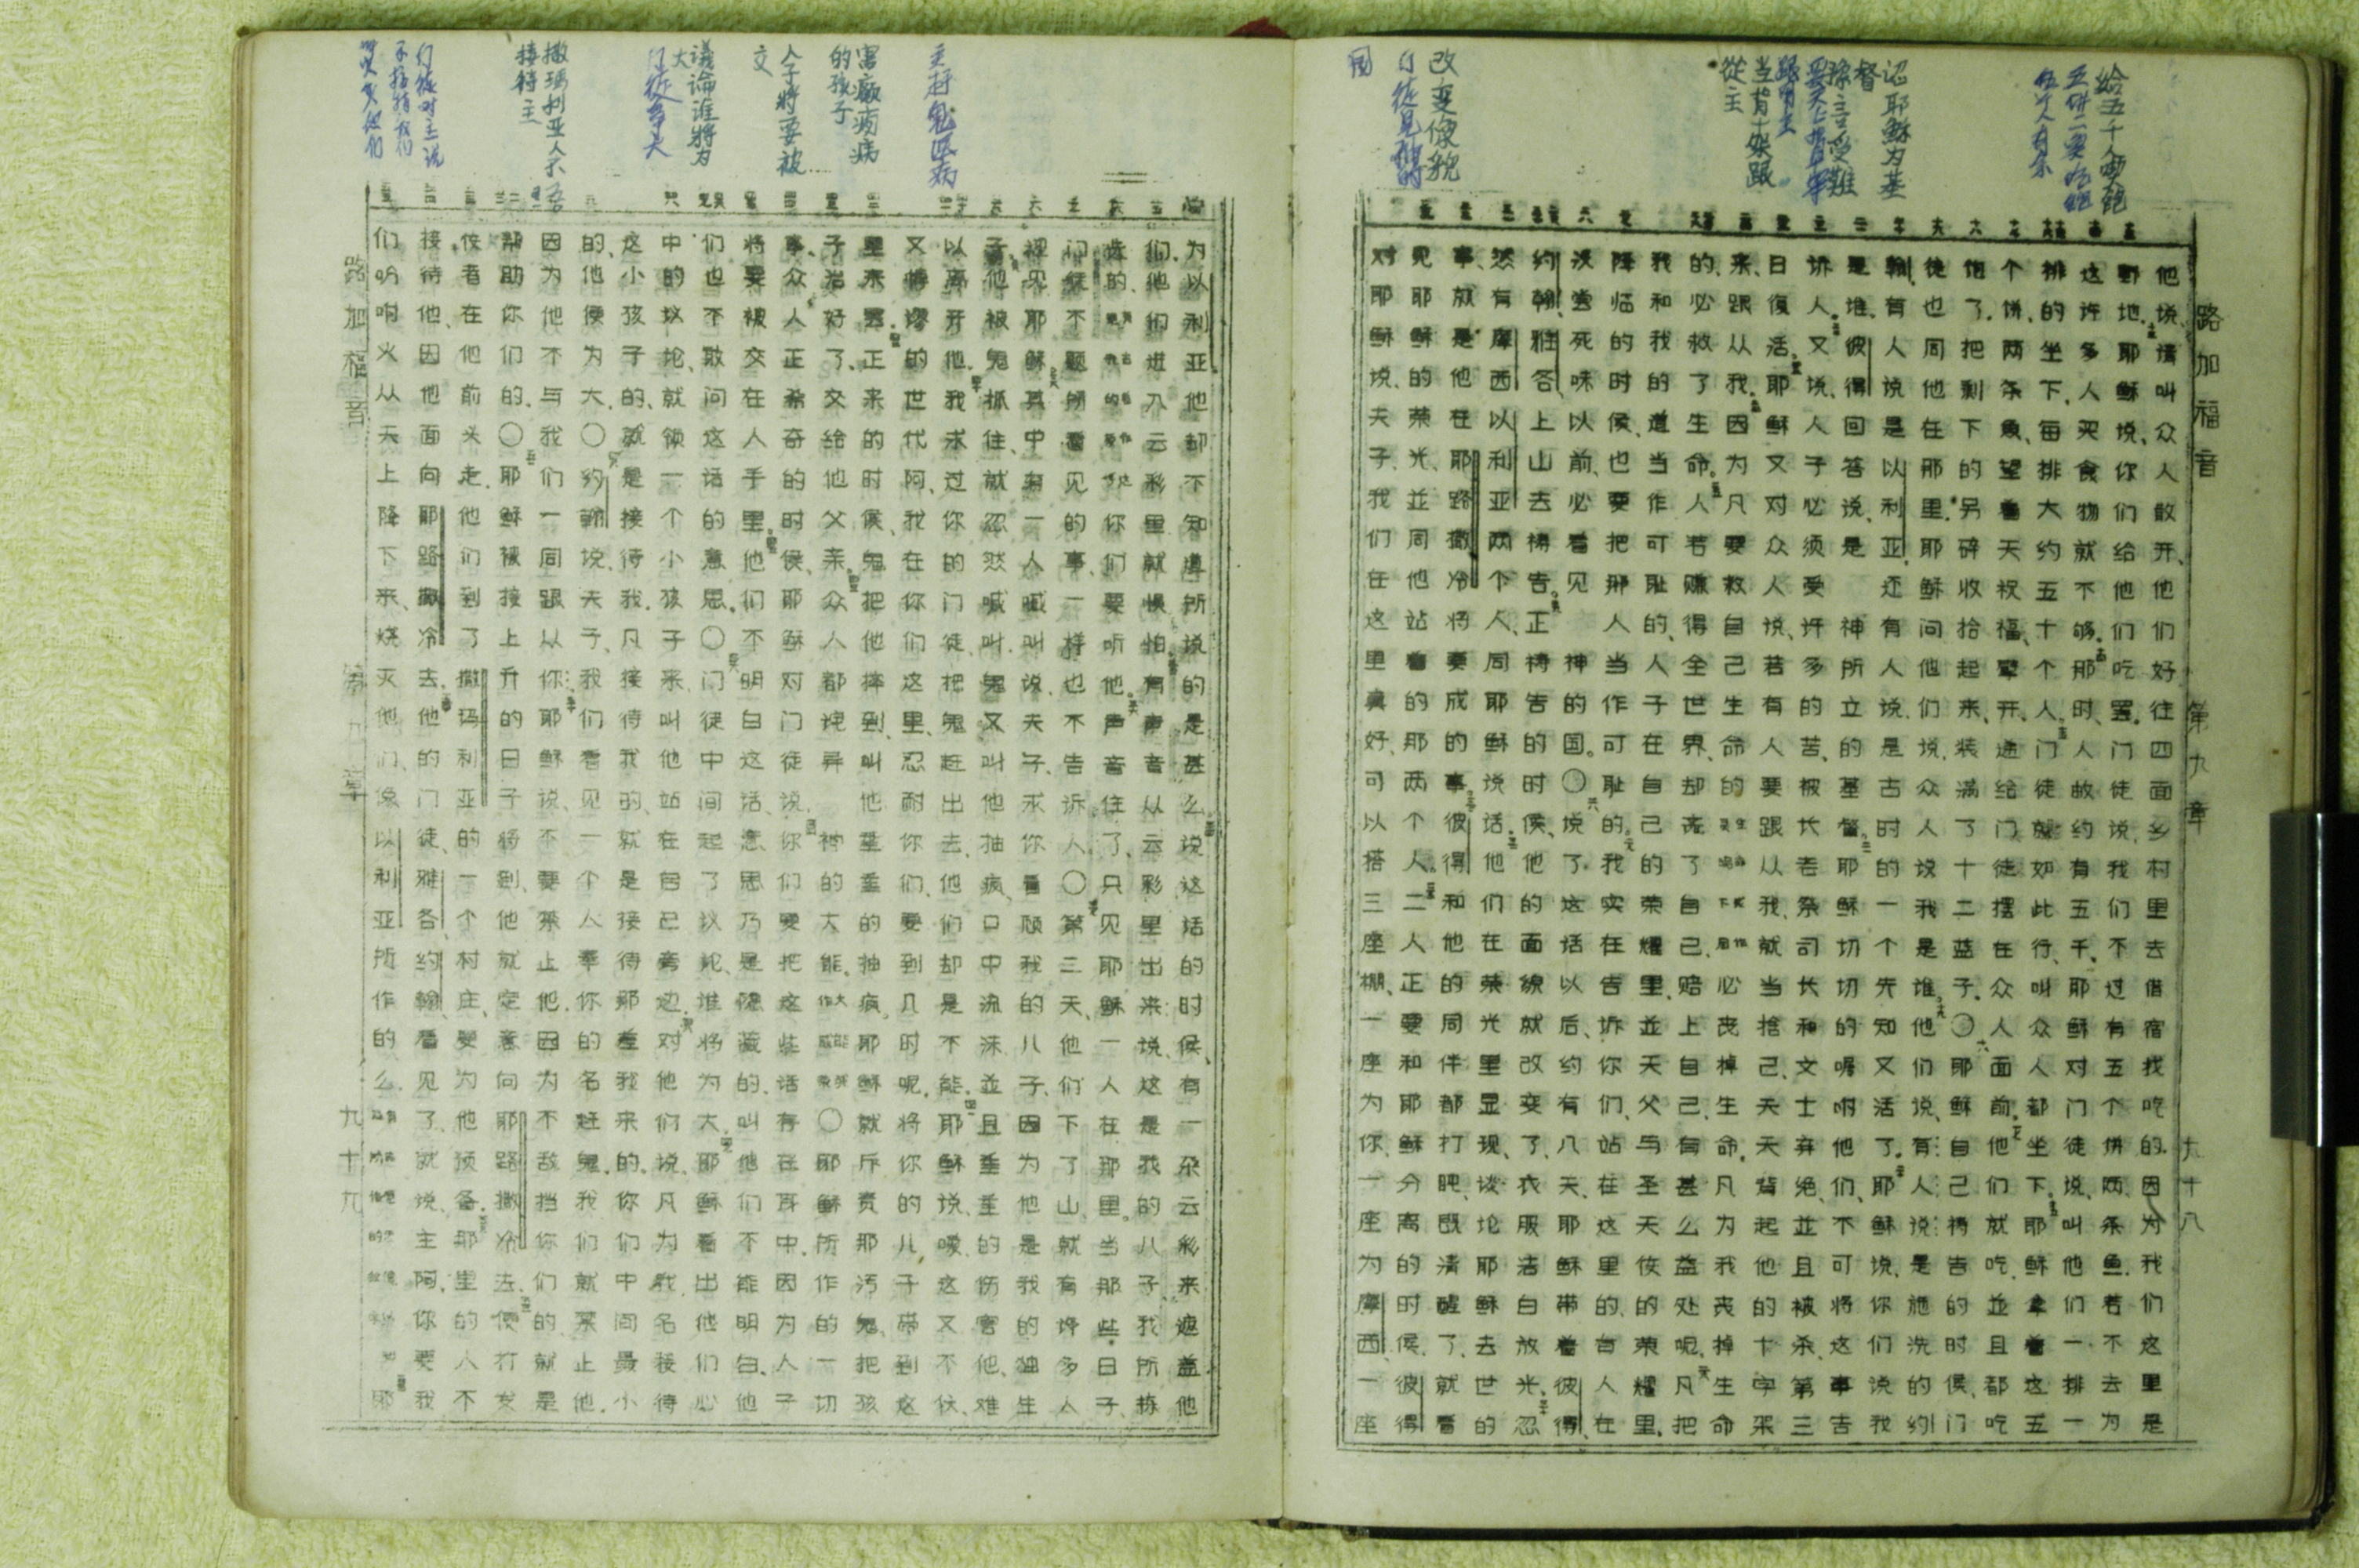 给五千人吃饱
五饼二
认耶稣为基
督
预言受难
当背十架跟
從主
改变像貌
门徒见神的
国
路加福音
第九章
九十八
他说、请叫众人散开、他们好往四面乡村里去借宿找吃的.因为我们这里是
野地.耶稣说、你们给他们吃罢.门徒说、我们不过有五个饼.两条鱼.若不去为
这许多人买食物就不够.那时人故约有五千.耶稣对门徒说、叫他们一排一
排的坐下、每排大约五十个人.门徒就如此行、叫众人都坐下.耶稣拿着这五
个饼.两条鱼、望着天祝福、擘开、递给门徒摆在众人面前.他们就吃.並且都吃
饱了.把剩下的另碎收拾起来、装满了十二蓝子.〇耶稣自己祷告的时候、门
徒也同他在那里.耶稣问他们说.众人说我是谁.他们说、有人说是施洗的约
翰.有人说是以利亚.还有人说.是古时的一个先知又活了.耶稣说.你们说我
是谁.彼得回答说、是 神所立的基督.耶稣切切的嘱咐他们、不可将这事告
诉人.又说、人子必须受许多的苦、被长老祭司长和文士弃绝並且被杀、第三
日復活.耶稣又对众人说、若有人要跟从我、就当捨己、天天背起他的十字架
来跟从我.因为凡要救自己生命的必丧掉生命.凡为我丧掉生命
的、必救了生命.人若赚得全世界却丧了自己、赔上自己有甚么益处呢.凡把
我和我的道当作可耻的、人子在自己的荣耀里、並天父与圣天使的荣耀里.
降临的时候、也要把那人当作可耻的.我实在告诉你们、站在这里的有人在
没尝死味以前、必看见 神的国。〇说了这话以后、约有八天、耶稣带着彼得、
约翰雅各上山去祷告.正祷告的时候、他的面貌就改变了、衣服洁白放光.忽
然有摩西以利亚两个人、同耶稣说话.他们在荣光里显现、谈论耶稣去世的
事、就是他在耶路撒冷将要成的事.彼得和他的同伴都打盹、既清醒了、就看
见耶稣的荣光、並同他站着的那两个人.二人正要和耶稣分离的时候.彼得
对耶稣说、夫子、我们在这里真好、可以搭三座棚、一座为你一座为摩西一座
主赶鬼医病
害癫痫病
的孩子
人子将要被
交
議論谁將为
大
门徒争大
撒瑪利亚人不
接待主
门徒对主说
不接待我们
路加福音
第九章
九十九
为以利亚.他却不知道所说的是甚么.说这话的时候、有一朵云彩来遮盖他
们.他们进入云彩里就惧怕.有声音从云彩里出来说、这是我的儿子、我所拣
选的你们要听他.声音住了、只见耶稣一人在那里.当那些日子、
门徒不题所看见的事、一样也不告诉人.〇第二天、他们下了山、就有许多人
迎见耶稣.其中有一人喊叫说、夫子、求你看顾我的儿子、因为他是我的独生
子.他被鬼抓住、就忽然喊叫.鬼又叫他抽疯口中流沫、並且重重的伤害他、难
以离开他.我求过你的门徒、把鬼赶出去、他们却是不能.耶稣说、嗳、这又不信、
又悖谬的世代阿、我在你们这里、忍耐你们、要到几时呢.将你的儿子带到这
里来罢.正来的时候、鬼把他摔到、叫他重重的抽疯.耶稣就斥责那污鬼.把孩
子治好了、交给他父亲.众人都诧异 神的大能.〇耶稣所作的一切
事、众人正希奇的时候、耶稣对门徒说、你们要把这些话存在耳中.因为人子
将要被交在人手里.他们不明白这话、意思乃是隐藏的、叫他们不能明白.他
们也不敢问这话的意思.〇门徒中间起了议论、谁将为大.耶稣看出他们心
中的议论、就领一个小孩子来、叫他站在自己旁边.对他们说、凡为我名接待
这小孩子的、就是接待我.凡接待我的、就是接待那差我来的.你们中间最小
的、他便为大.〇约翰说、夫子、我们看见一个人奉你的名赶鬼.我们就禁止他.
因为他不与我们一同跟以你.耶稣说、不要禁止他.因为不敌挡你们的、就是
帮助你们的.〇耶稣被接上升的日子将到、他就定意向耶路撒冷去.便打发
使者在他前头走.他们到了撒玛利亚的一个村庄、要为他预备.那里的人不
接待他、因他面向耶路撒冷去.他的门徒雅各约翰看见了、就说、主阿、你要我
们吩咐火从天上降下来、烧灭他们、像以利亚所作的么.耶